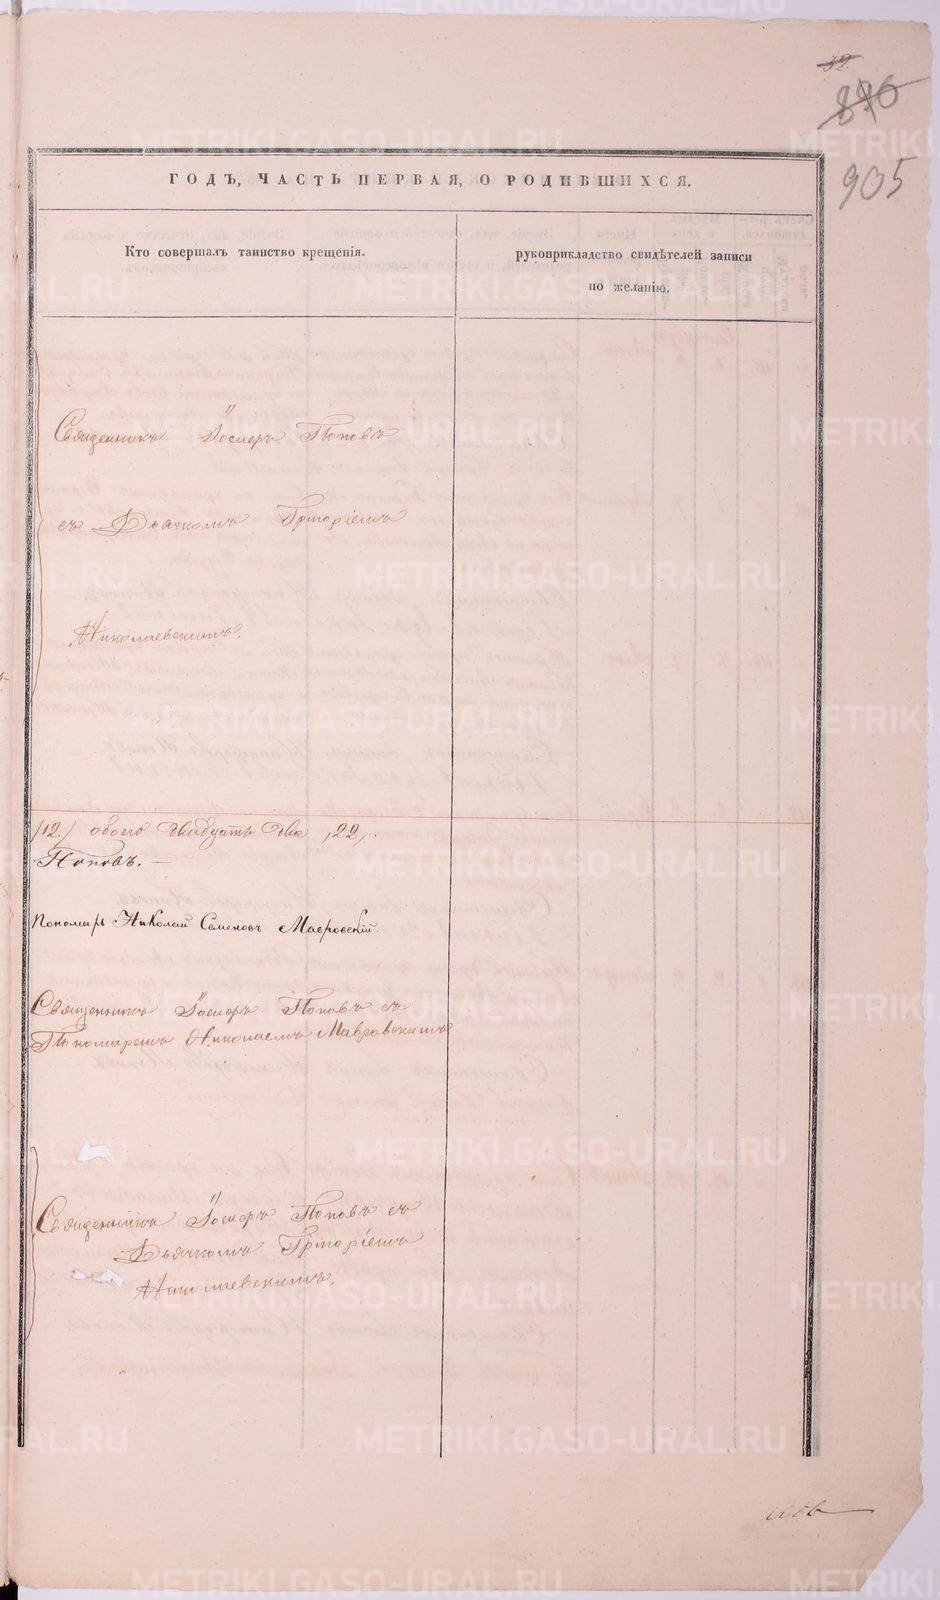 32.
890
905
ГОДЪ, ЧАСТЬ ПЕРВАЯ, О РОДИВШИХСЯ.
Кто совершалъ таинство крещенія.
рукоприкладство свидѣтелей записи
по желанію.
Священникъ Іосифъ Поповъ
съ Дьячкомъ Григоріемъ
Николаевскимъ.
/12./ обоего двадцать два /22/.
Поповъ. —
Пономарь Николай Семеновъ Мавровскій.
Священникъ Іосифъ Поповъ съ
Пономаремъ Николаемъ Мавровскимъ
Священникъ Іосифъ Поповъ съ
Дьячкомъ Григоріемъ
Николаевскимъ.
METRIKI.GASO-URAL.RU